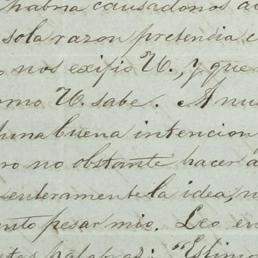 habria causadonos a
sola razon pretendia e
nos exijio V., y que
omo V. sabe. A nu
una buena intencion
ro no obstante hacer a
enteramente la idea, n
nto pesar mio. Leo en
tas palabras: "Estimo